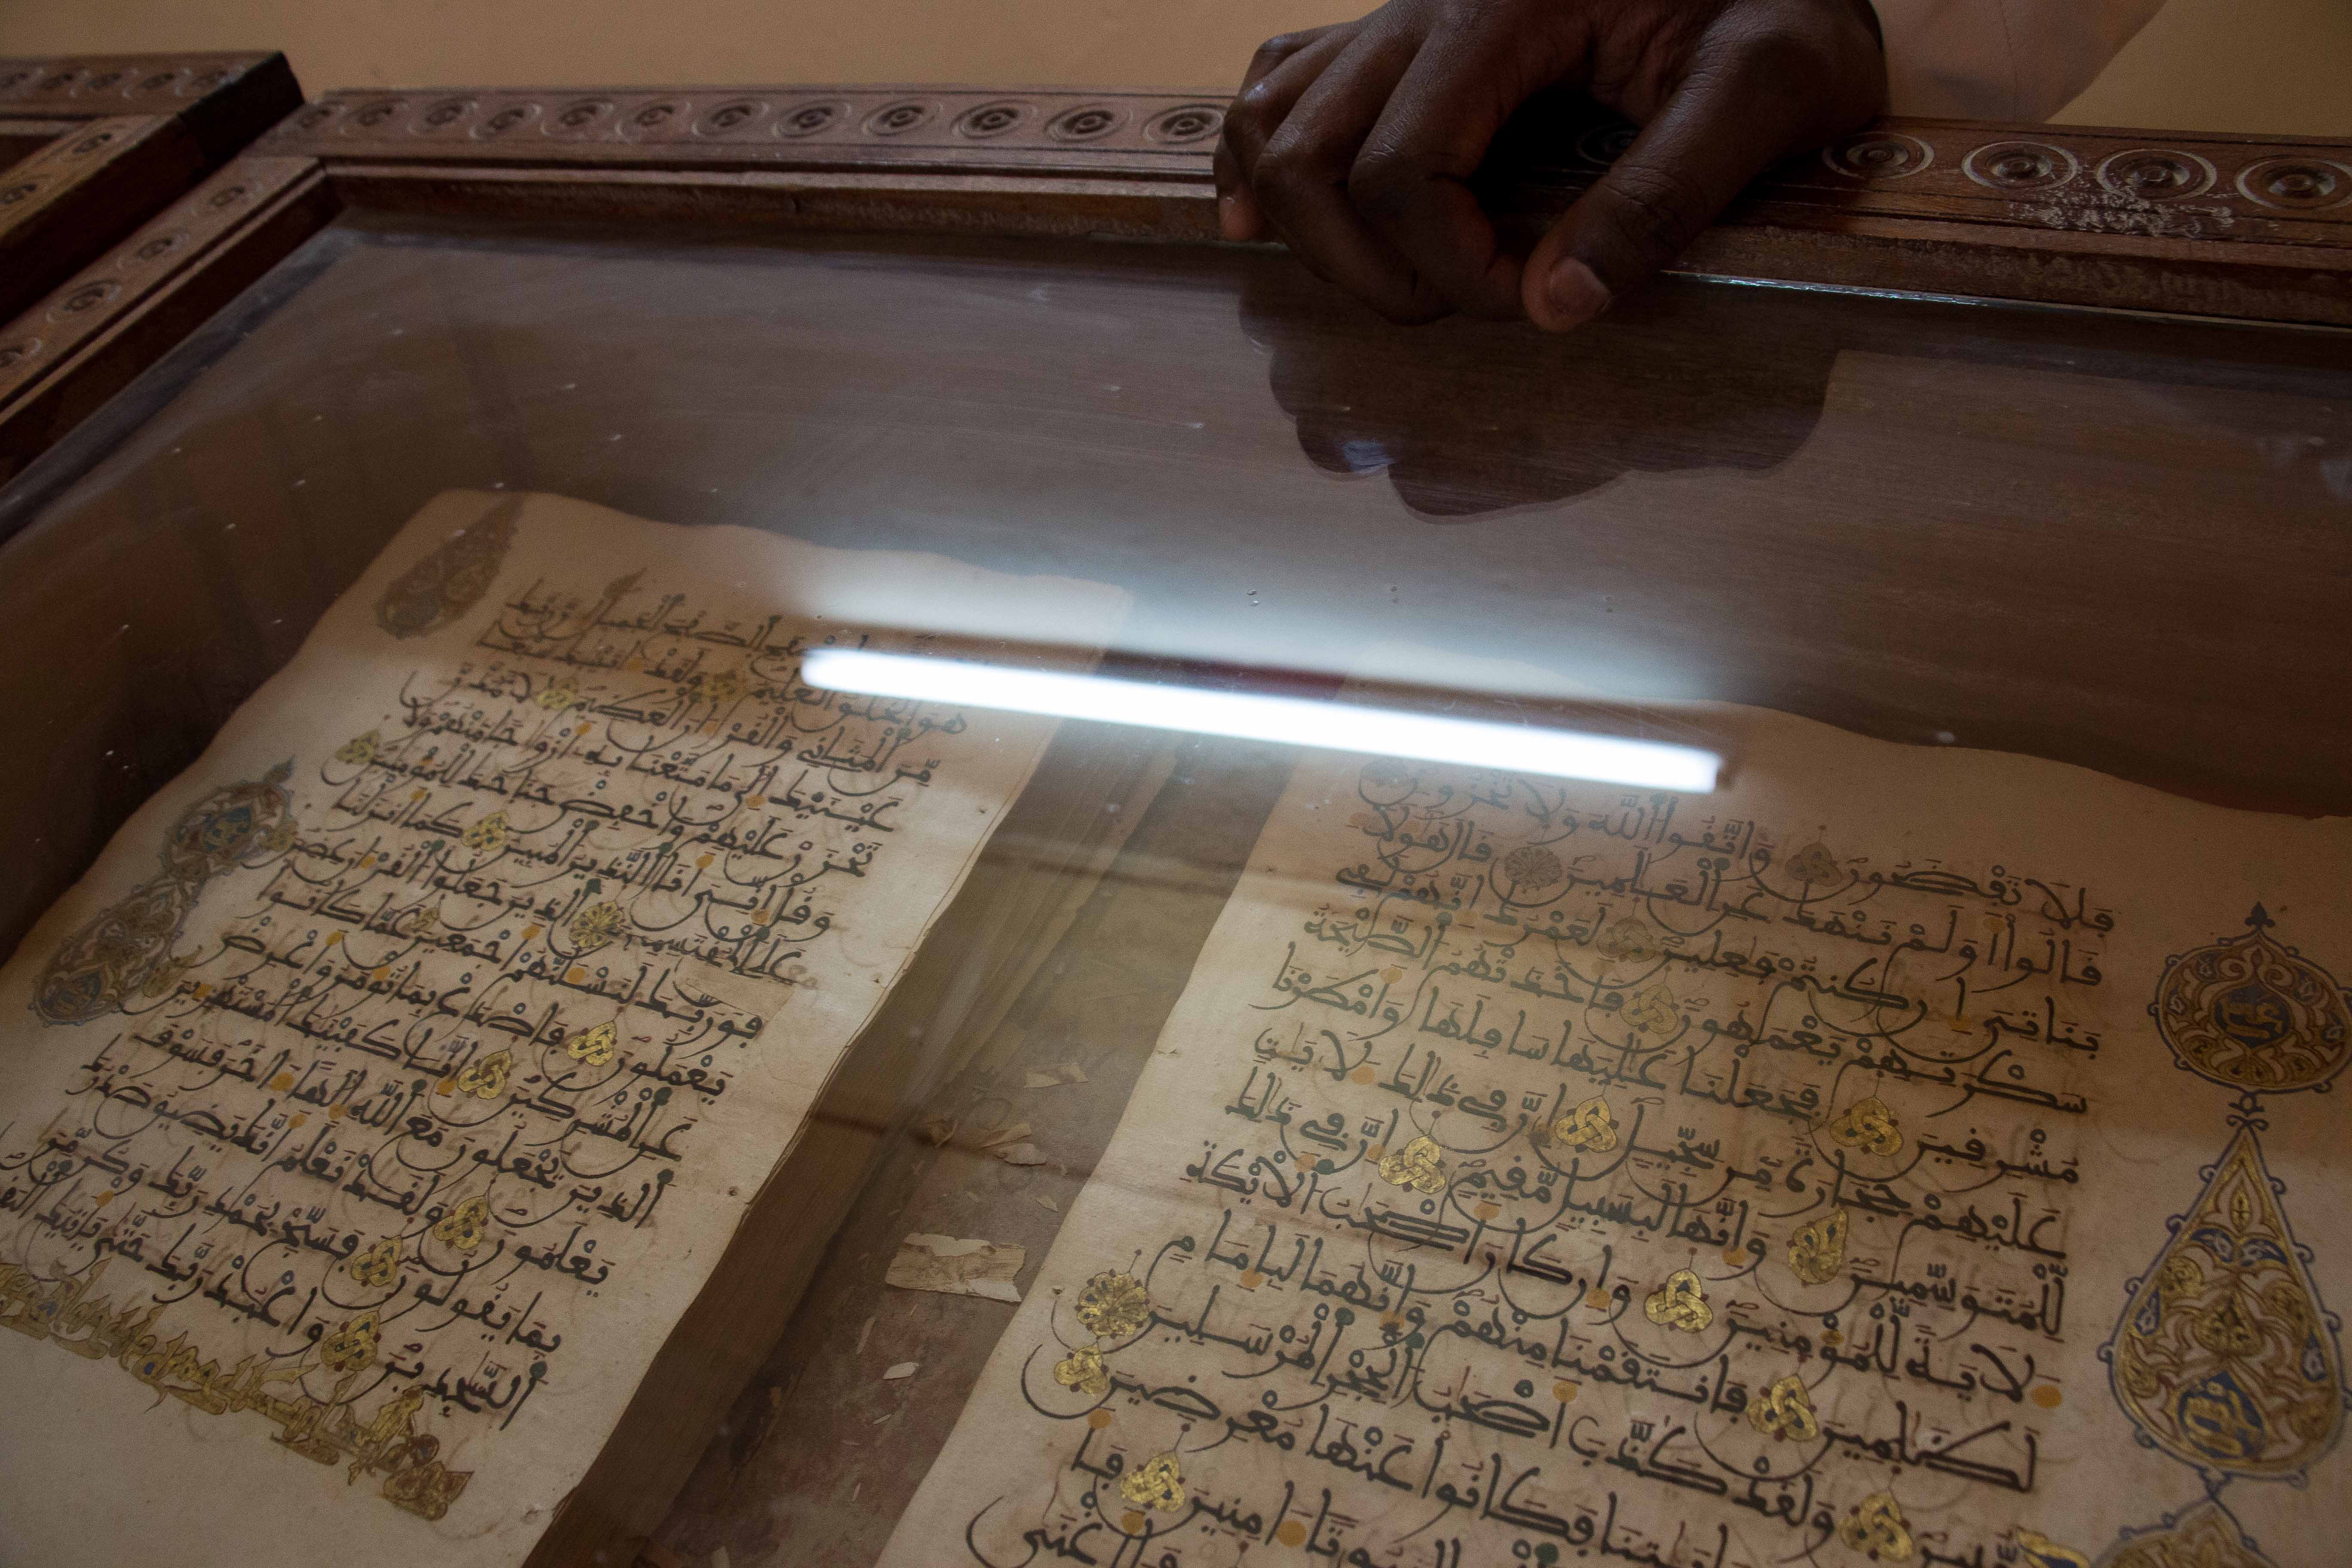 فلا تفضحون واتقوا الله ولا تخزون
قالوا أولم ننهك عن العلمين قال هؤلاء
بناتي إن كنتم فعلين لعمرك إنهم لفي
سكرتهم يعمهون فأخذتهم الصيحة
مشرقين فجعلنا عليها سافلها وأمطرنا
عليهم حجارة من سجيل إن في ذلك لأيت
للمتوسمين وإنها لبسبيل مقيم إن في ذلك
لأية للمؤمنين وإن كان أصحب الأيكة
لظلمين فانتقمنا منهم وإنهما لبإمام
ولقد كذب أصحب الحجر المرسلين
فكانوا عنها معرضين
امنين فما
أغنى
الصفح الجميل إن ربك
هو الخلق العليم ولقد اتينك سبعا
من المثاني والقران العظيم لا تمدن
عينيك إلى ما متعنا به أزوجا منهم ولا
تحزن عليهم واخفض جناحك للمؤمنين
وقل إني أنا النذير المبين كما أنزلنا
على المقتسمين الذين جعلوا القران عضين
فوربك لنسئلنهم أجمعين عما كانوا
يعملون فاصدع بما تؤمر وأعرض
عن المشركين إنا كفينك المستهزءين
الذين يجعلون مع الله إلها اخر فسوف
يعلمون ولقد نعلم أنك يضيق صدرك
بما يقولون فسبح بحمد ربك وكن من
السجدين واعبد ربك حتى يأتيك اليقين